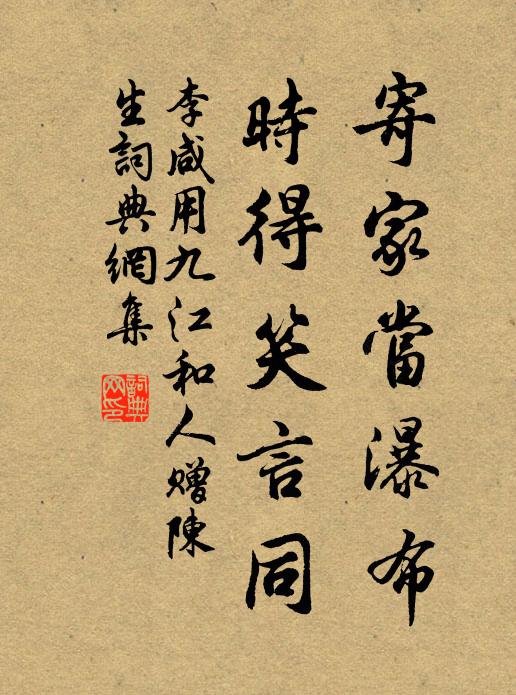 寄家當瀑布
時得笑言同
李咸用九江和人贈陳
生詞典網集
詞典
網印